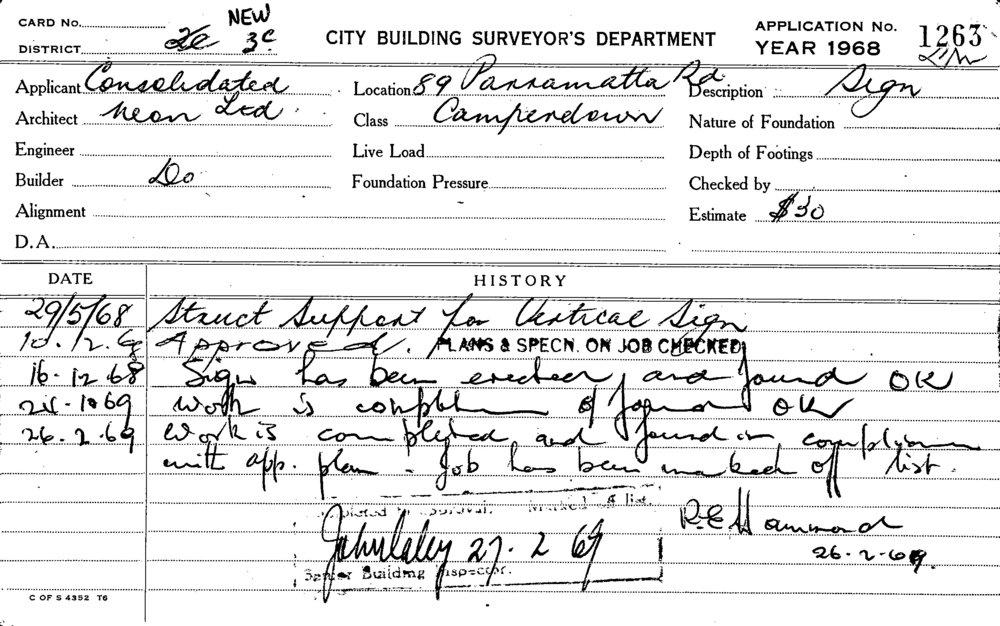 CARD No. 2c NEW 3c
DISTRICT
CITY BUILDING SURVEYOR'S DEPARTMENT
APPLICATION No. 1263
YEAR 1968
Applicant Consolidated
Location 89 Parramatta Rd
Description Sign
Architect Neon Ltd
Class Camperdown
Nature of Foundation
Engineer
Live Load
Depth of Footings
Builder Do
Foundation Pressure
Checked by
Alignment
Estimate $30
D.A.
DATE HISTORY
29/5/68 Struct Support for Vertical Sign
10.12.68 Approved. PLANS & SPECN. ON JOB CHECKED
16-12-68 Sign has been erected and found OK
69 work is OK
26.2.69 Work is completed and found in
with app. plan - Job has been marked off list.
Completed in approval. Marked off list.
R.E Hammond
27.2 69
26-2-69.
Senior Building Inspector.
C OF S 4352 T6